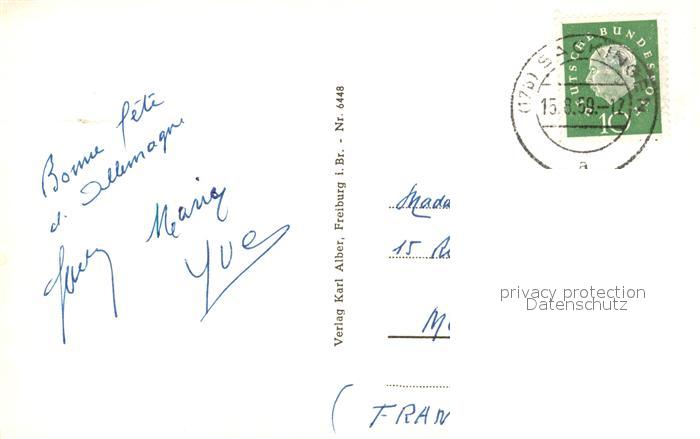 Bonne fête
d'Allemagne
Marie
Yve
Verlag Karl Alber, Freiburg i. Br. - Nr. 6448
DEUTSCHE BUNDESPOST
10
(17b) SÄCKINGEN
15.8.59.-17
a
Mada
15 R
privacy protection
Datenschutz
M
( FRAN